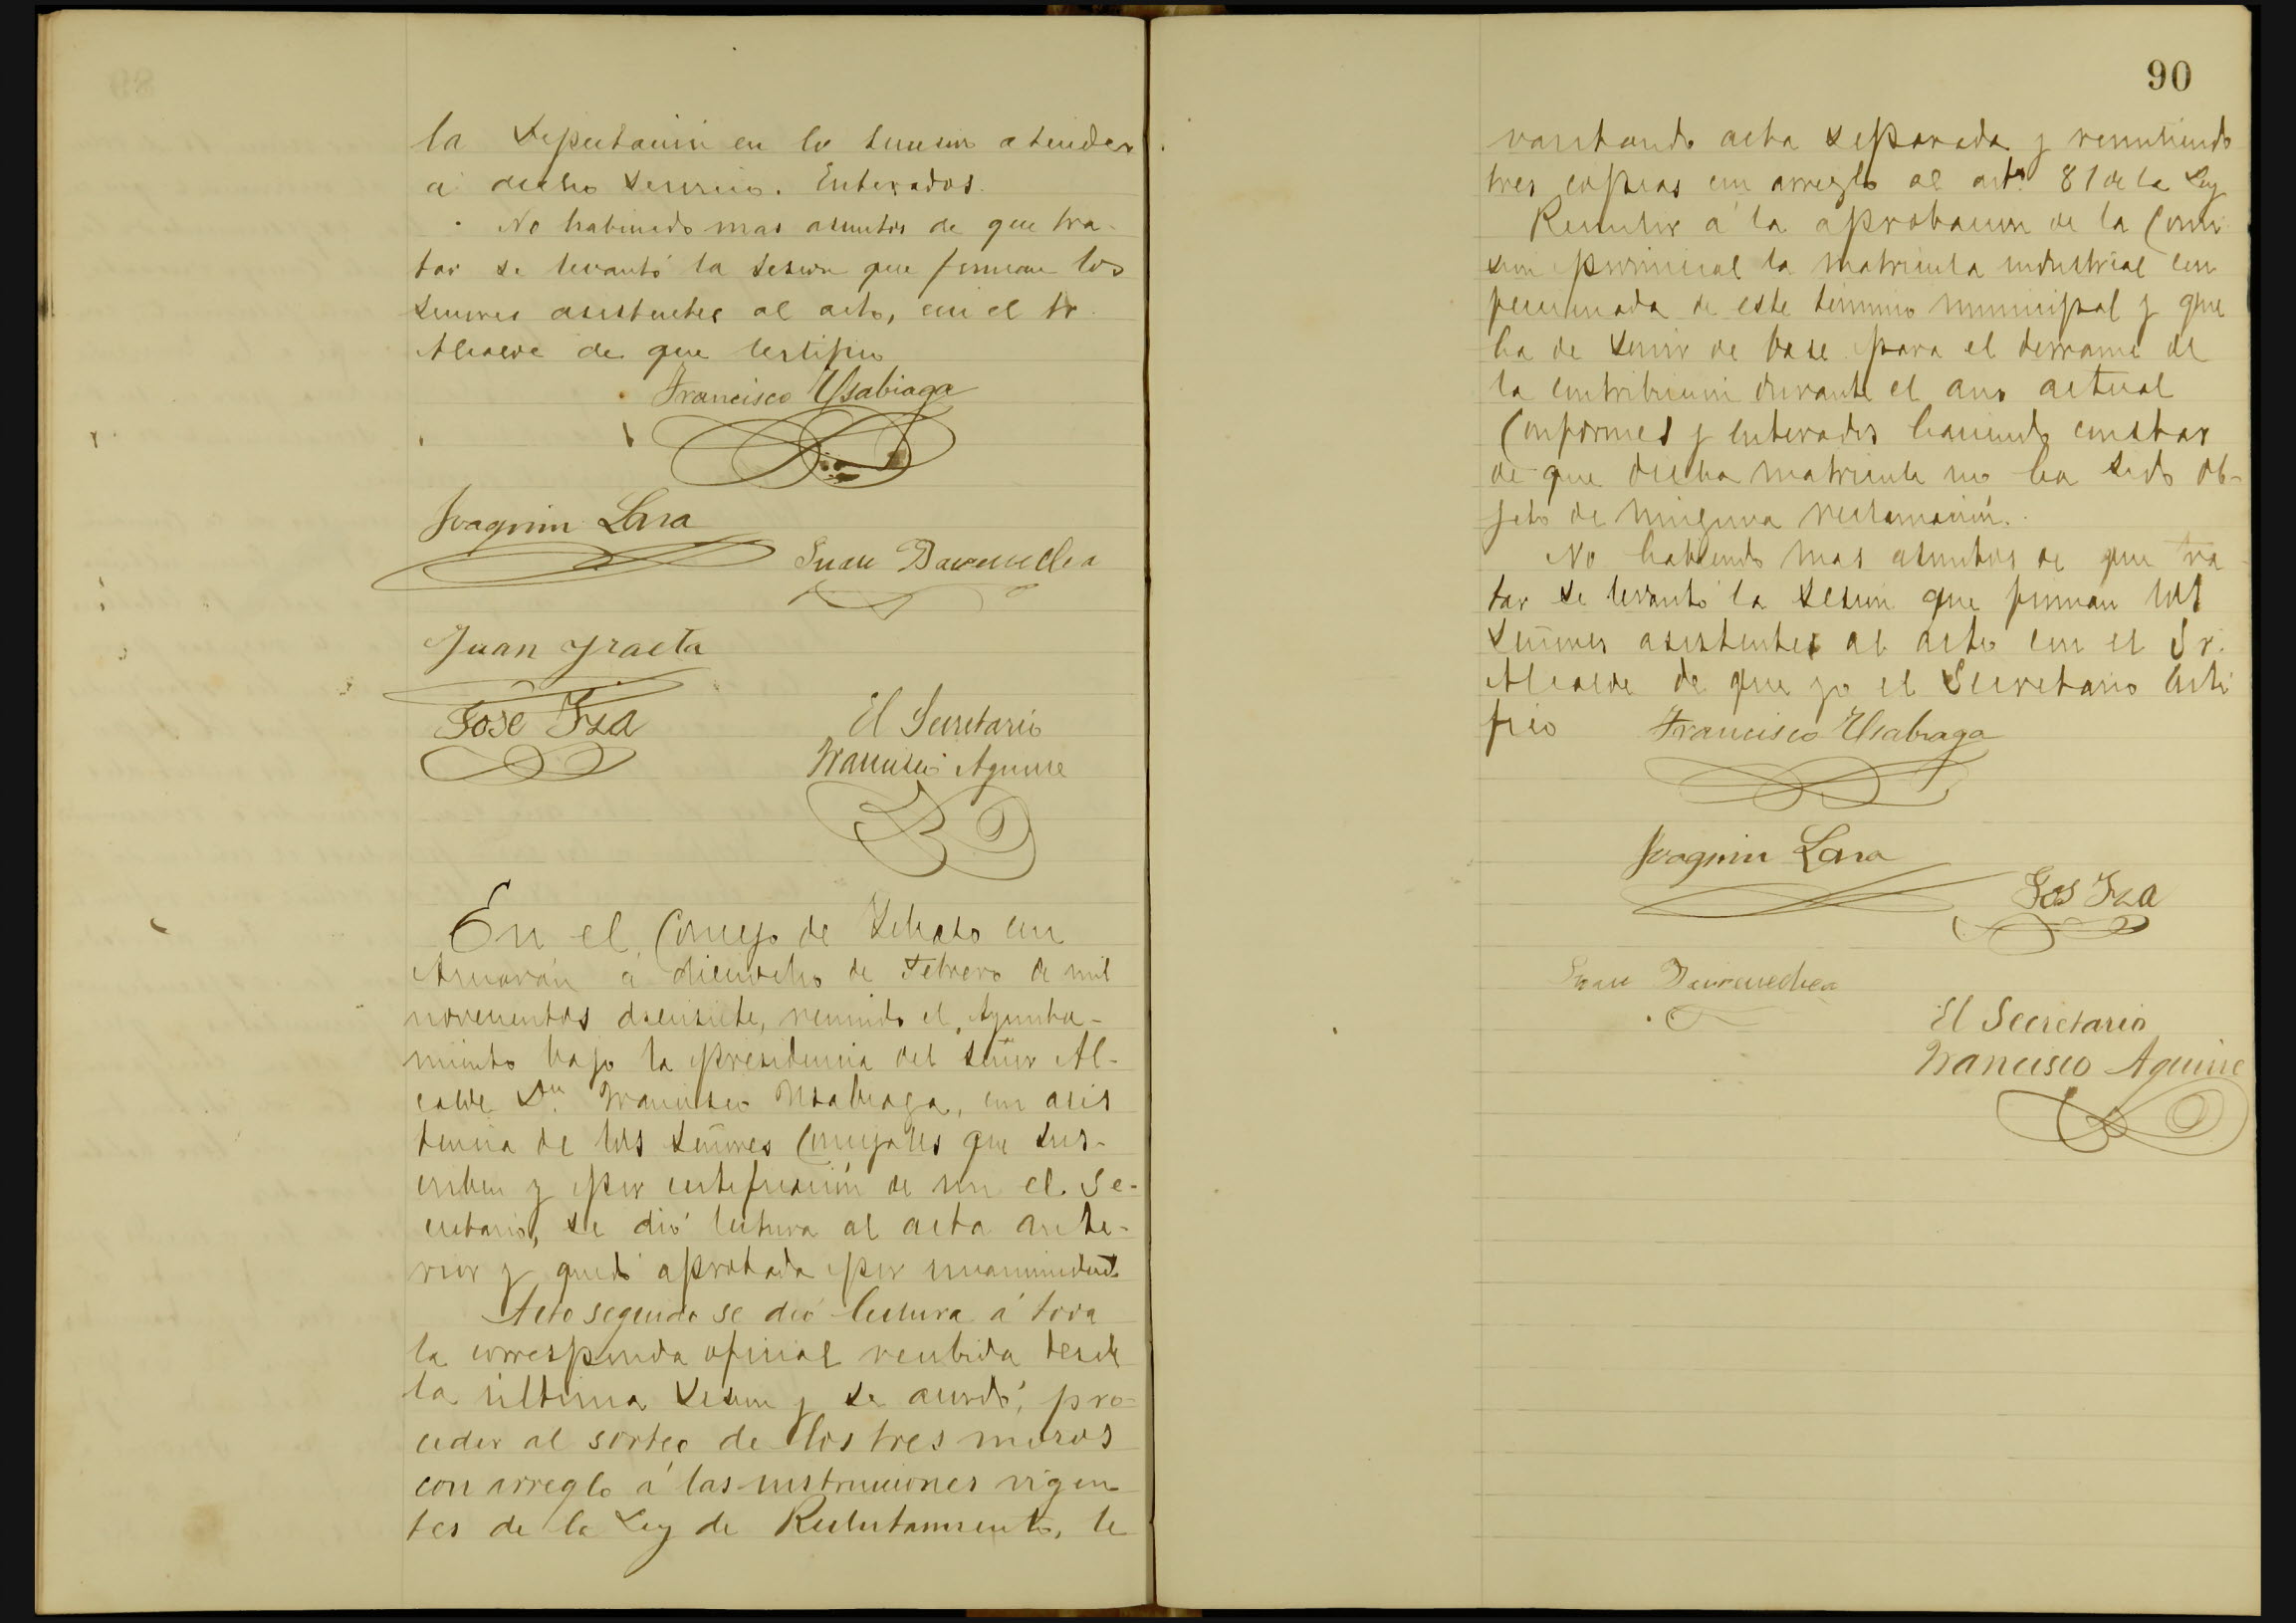 la Diputacion en lo sucesivo atender
á dicho servicio. Enterados.
No habiendo mas asuntos de que tra-
tar se levantó la sesion que firman los
señores asistentes al acto, con el Sr.
Alcalde de que certifico
Francisco Usabiaga
Joaquin Lasa
Juan Barrenechea
Juan Yraeta
Jose Iza
El Secretario
Francisco Aguirre
En el Concejo de Debate en
á dieciocho de Febrero de mil
novecientos diecisiete, reunido el Ayunta-
miento bajo la presidencia del señor Al-
calde Dn. Francisco Usabiaga, con asis
tencia de los señores Concejales que sus-
criben y por certificación de mi el Se-
cretario, se dió lectura al acta ante-
rior y quedó aprobada por unanimidad
Acto seguido se dió lectura á toda
la corresponda oficial recibida desde
la última sesion y se acordó, pro-
ceder al sorteo de los tres mozos
con arreglo á las instrucciones vigen
tes de la Ley de Reclutamiento, le
90
vantando acta separada y remitiendo
tres copias con arreglo al artº 81 de la Ley
Remitir á la aprobacion de la Comi
sion provincial la matricula industrial con
feccionada de este término municipal y que
ha de servir de base para el derrame de
la contribucion durante el año actual
Conformes y enterados haciendo constar
de que dicha matricula no ha sido ob-
jeto de ninguna reclamación.
No habiendo mas asuntos de que tra
tar se levantó la sesion que firman los
señores asistentes al acto con el Sr.
Alcalde de que yo el Secretario certi
fico
Francisco Usabiaga
Joaquin Lasa
Jos Iza
Juan Barrenechea
El Secretario
Francisco Aguirre